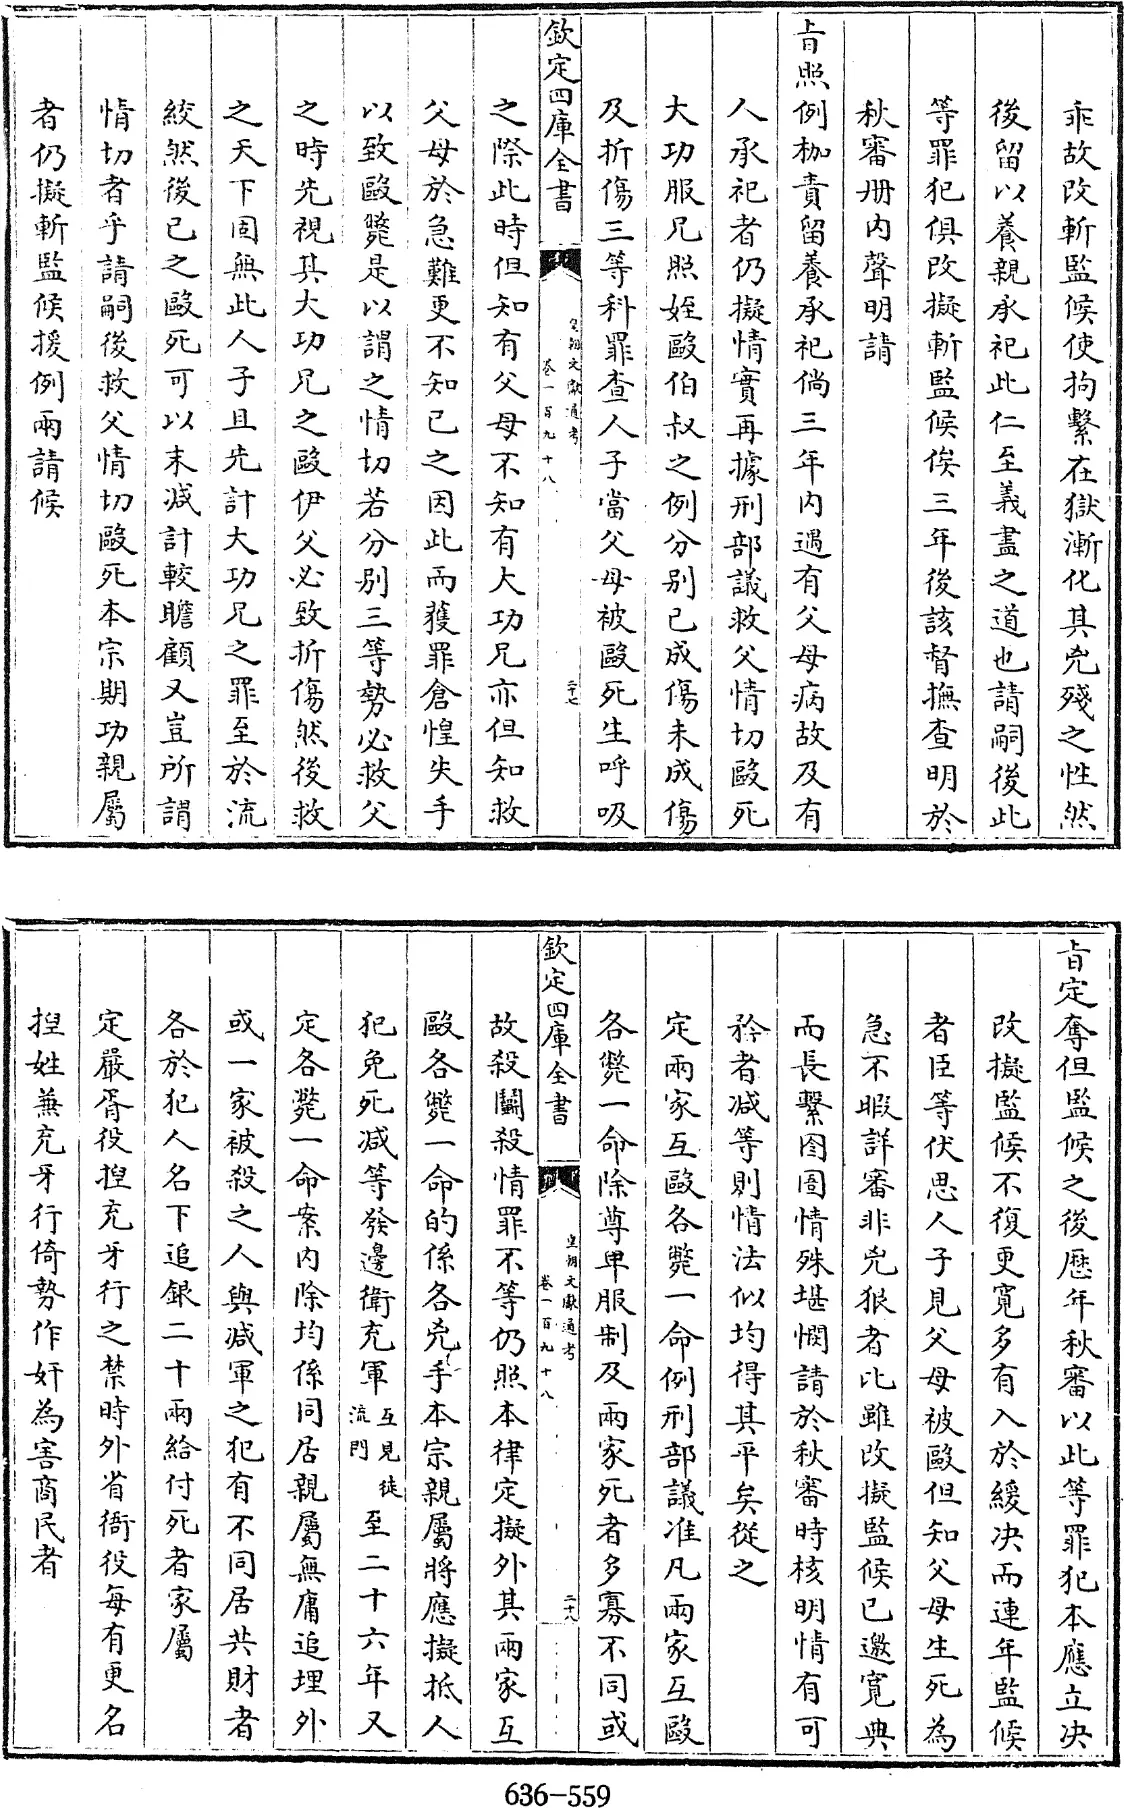 乖故改斬監候使拘繫在獄漸化其兇殘之性然
後留以養親承祀此仁至義盡之道也請嗣後此
等罪犯俱改擬斬監候俟三年後該督撫查明於
秋審冊内聲明請
旨照例枷責留養承祀倘三年内遇有父母病故及有
人承祀者仍擬情實再據刑部議救父情切毆死
大功服兄照姪毆伯叔之例分别已成傷未成傷
及折傷三等科罪查人子當父母被毆死生呼吸
欽定四庫全書
皇朝文獻通考
卷一百九十八
二十七
之際此時但知有父母不知有大功兄亦但知救
父母於急難更不知已之因此而獲罪倉惶失手
以致毆斃是以謂之情切若分别三等勢必救父
之時先視其大功兄之毆伊父必致折傷然後救
之天下固無此人子且先計大功兄之罪至於流
絞然後已之毆死可以末減計較瞻顧又豈所謂
情切者乎請嗣後救父情切毆死本宗期功親屬
者仍擬斬監候援例兩請候
旨定奪但監候之後歷年秋審以此等罪犯本應立决
改擬監候不復更寬多有入於緩决而連年監候
者臣等伏思人子見父母被毆但知父母生死為
急不暇詳審非兇狠者比雖改擬監候已邀寬典
而長繫囹圄情殊堪憫請於秋審時核明情有可
矜者減等則情法似均得其平矣從之
定兩家互毆各斃一命例刑部議准凡兩家互毆
各斃一命除尊卑服制及兩家死者多寡不同或
欽定四庫全書
皇朝文獻通考
卷一百九十八
二十八
故殺鬭殺情罪不等仍照本律定擬外其兩家互
毆各斃一命的係各兇手本宗親屬將應擬抵人
犯免死減等發邊衛充軍互見徒流門至二十六年又
定各斃一命案内除均係同居親屬無庸追埋外
或一家被殺之人與減軍之犯有不同居共財者
各於犯人名下追銀二十兩給付死者家屬
定嚴胥役揑充牙行之禁時外省衙役每有更名
揑姓兼充牙行倚勢作奸為害商民者
636-559